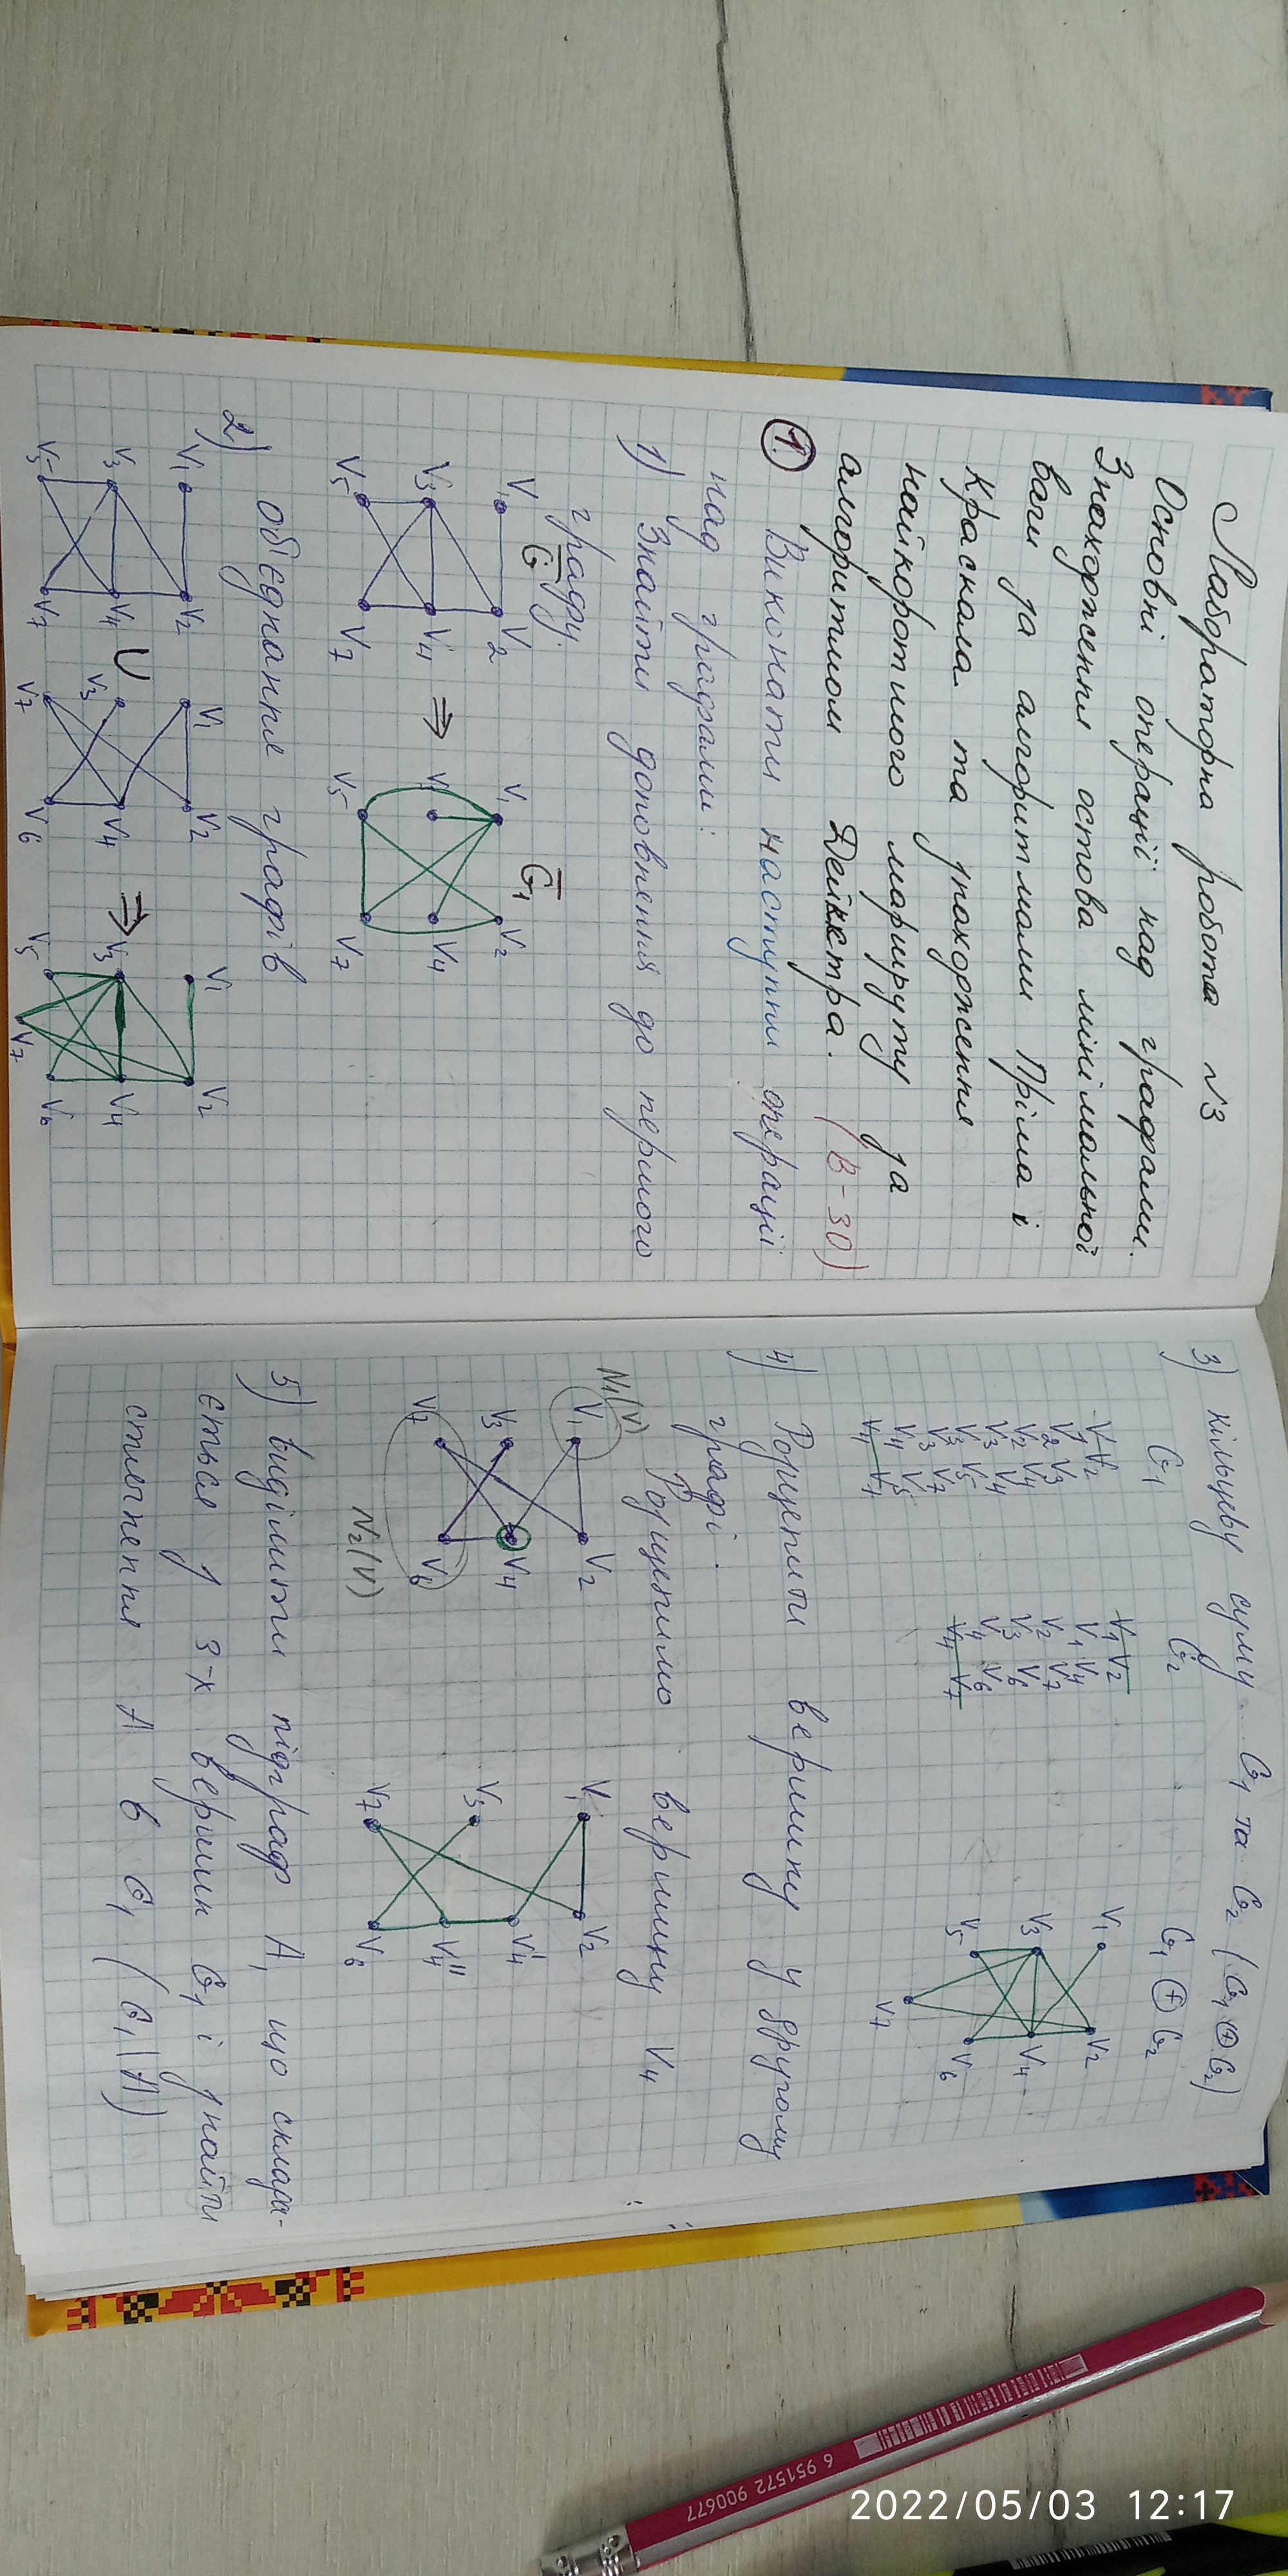 Лабораторна робота №3
Основні операції над графами.
Знаходження остова мінімальної
ваги за алгоритмами Пріма і
Краскала та знаходження
найкоротшого маршруту за
алгоритмом Дейкстра. (В-30)
1. Виконати наступни операції
над графами:
1) Знайти доповнення до першого
графу.
G̅ G̅1
V1 V2 V1 V2
V3 V4 ⇒ V4
V5 V7 V5 V7
2) об'єднання графів
V1 V2 V1 V2 V1 V2
V3 V4 U V3 V4 ⇒ V3 V4
V5 V7 V7 V6 V5 V7 V6
3) кільцеву суму G1 та G2 (G1 ⊕ G2)
G1 G2 G1 ⊕ G2
V1 V2
V2 V3
V2 V4
V3 V4
V3 V5
V3 V7
V4 V5
V1 V2
V1 V4
V2 V7
V3 V6
V4 V6
V4 V7
V1 V2
V3 V4
V5 V6
V7
4) Розщепити вершину у другому
графі.
Розщепимо вершину V4
N1(V)
V1 V2 V1 V2
V3 V4 V3 V4' V4''
V7 V6 V7 V6
N2(V)
5) виділити підграф А, що склада-
ється з 3-х вершин G1 і знайти
стягнення А в G1 (G1\A)
2022/05/03 12:17
6 951572 900677